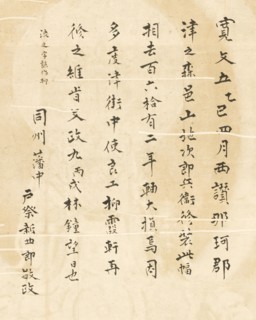 寛文五乙巳四月西讃那珂郡
津之森邑山施次郎兵衛修装此幅
相去百六拾有二年軸大損焉因
多度津街中使良工柳雲軒再
修之維旹文政九丙戌林鐘望日也
同州藩中 戸祭新郎敬政